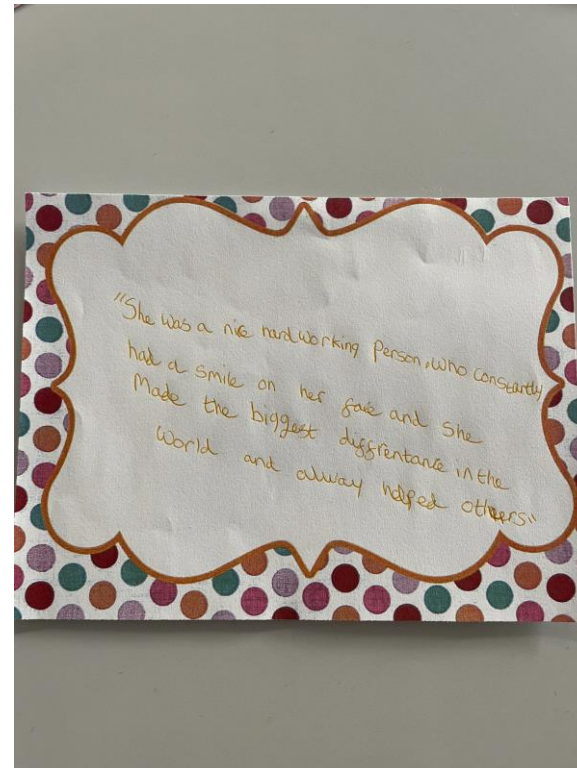 "She was a nice hardworking Person, who constantly
had a smile on her face and she
Made the biggest diffrentance in the
World and alway helped others"